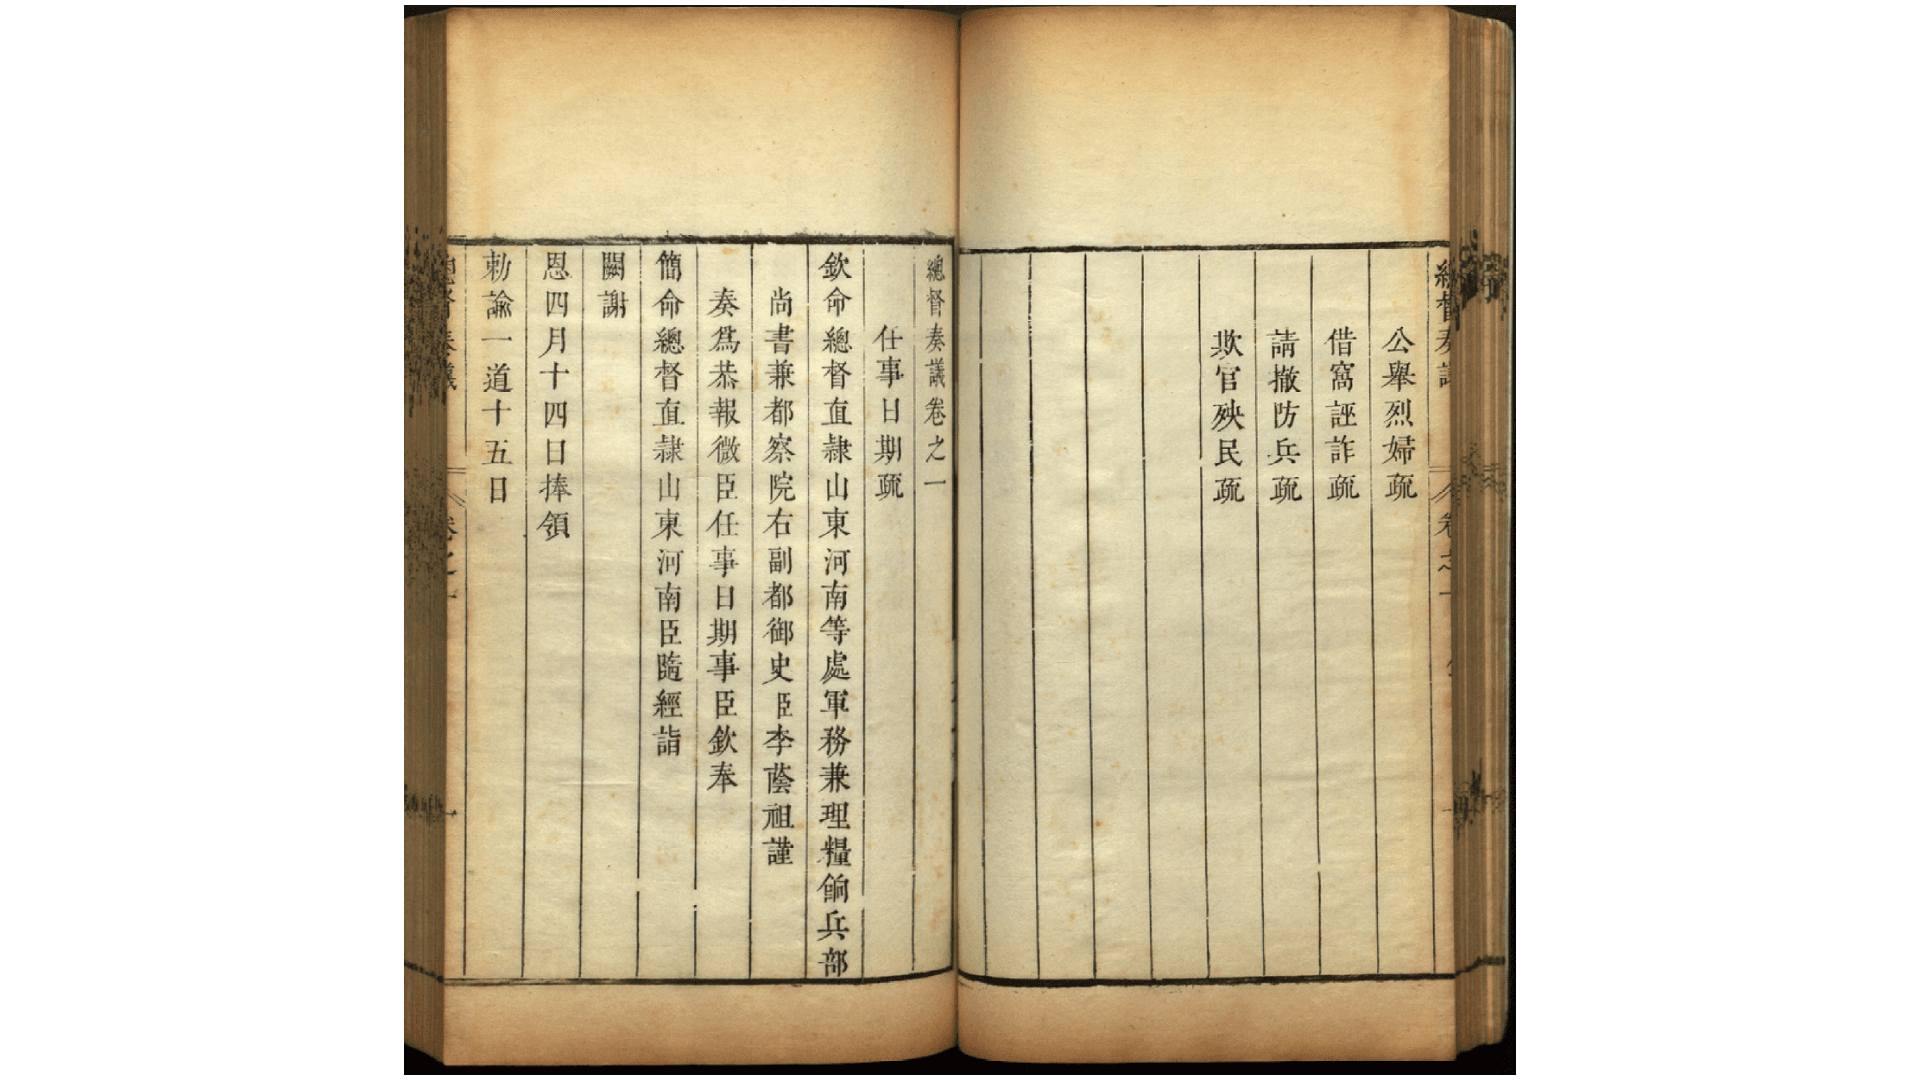 公舉烈婦疏
借窩誣詐疏
請撤防兵疏
欺官殃民疏
總督奏議卷之一
任事日期疏
欽命總督直隸山東河南等處軍務兼理糧餉兵部
尚書兼都察院右副都御史臣李蔭祖謹
奏爲恭報微臣任事日期事臣欽奉
簡命總督直隸山東河南臣隨經詣
闕謝
恩四月十四日捧領
勅諭一道十五日